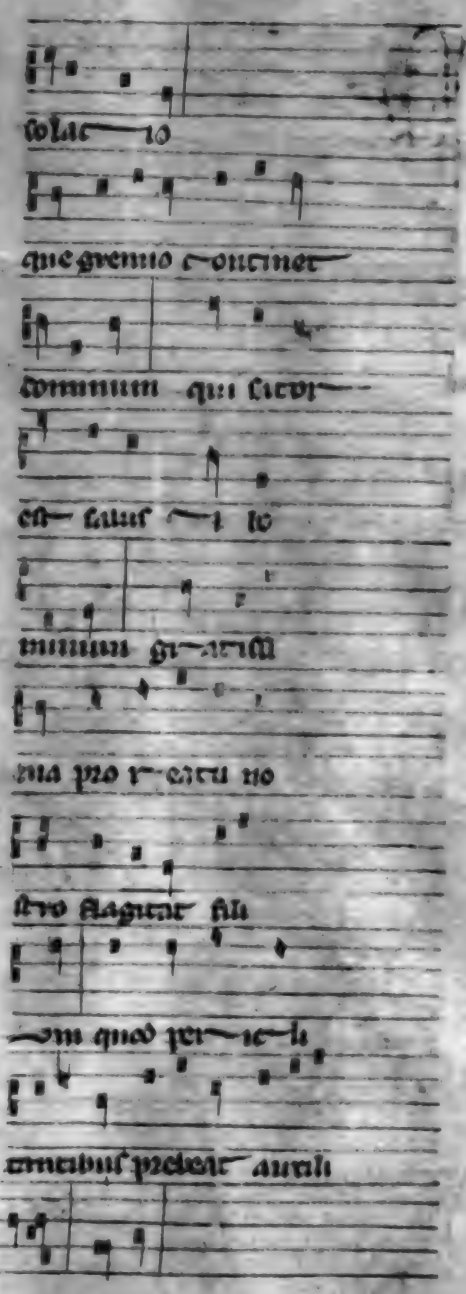 solac io
que gremio continet
omnium qui sitor
est salus i lo
minum gratissi
ma pro reatu no
stro flagitat fili
om quod per ic li
tantibus prebeat auxili